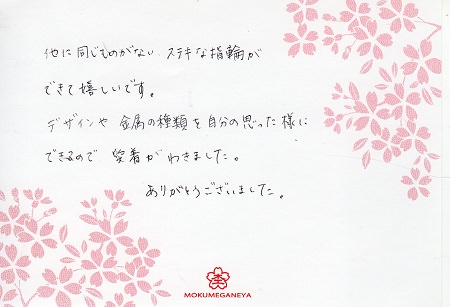 他に同じものがない ステキな指輪が
できて嬉しいです。
デザインや 金属の種類を自分の思った様に
できるので 愛着がわきました。
ありがとうございました。
杢
MOKUMEGANEYA